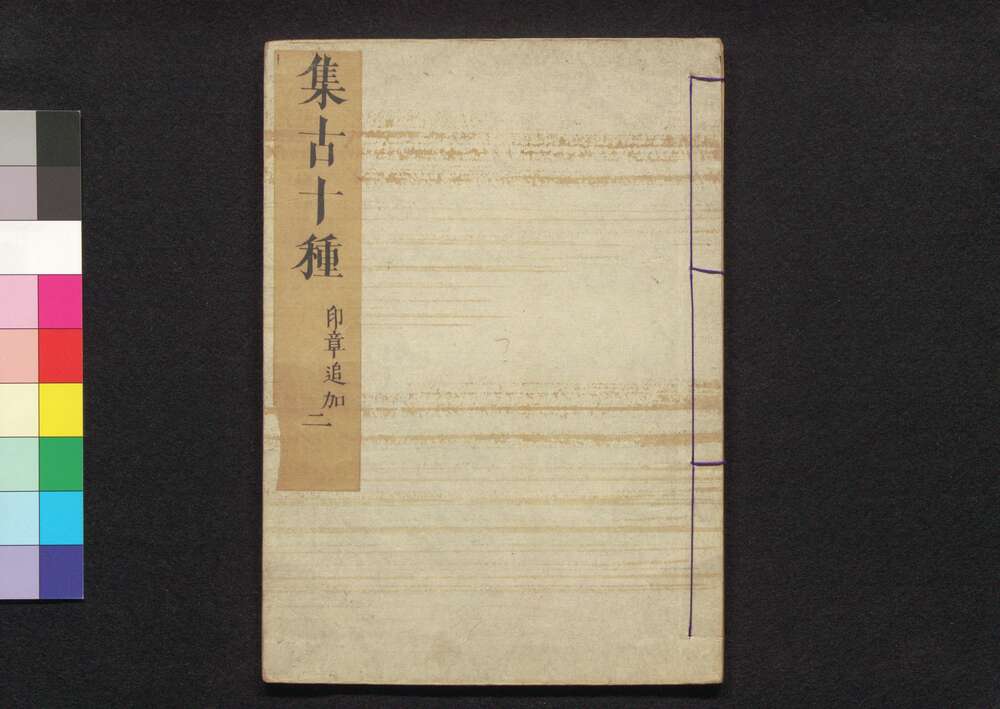 集古十種
印章追加
二